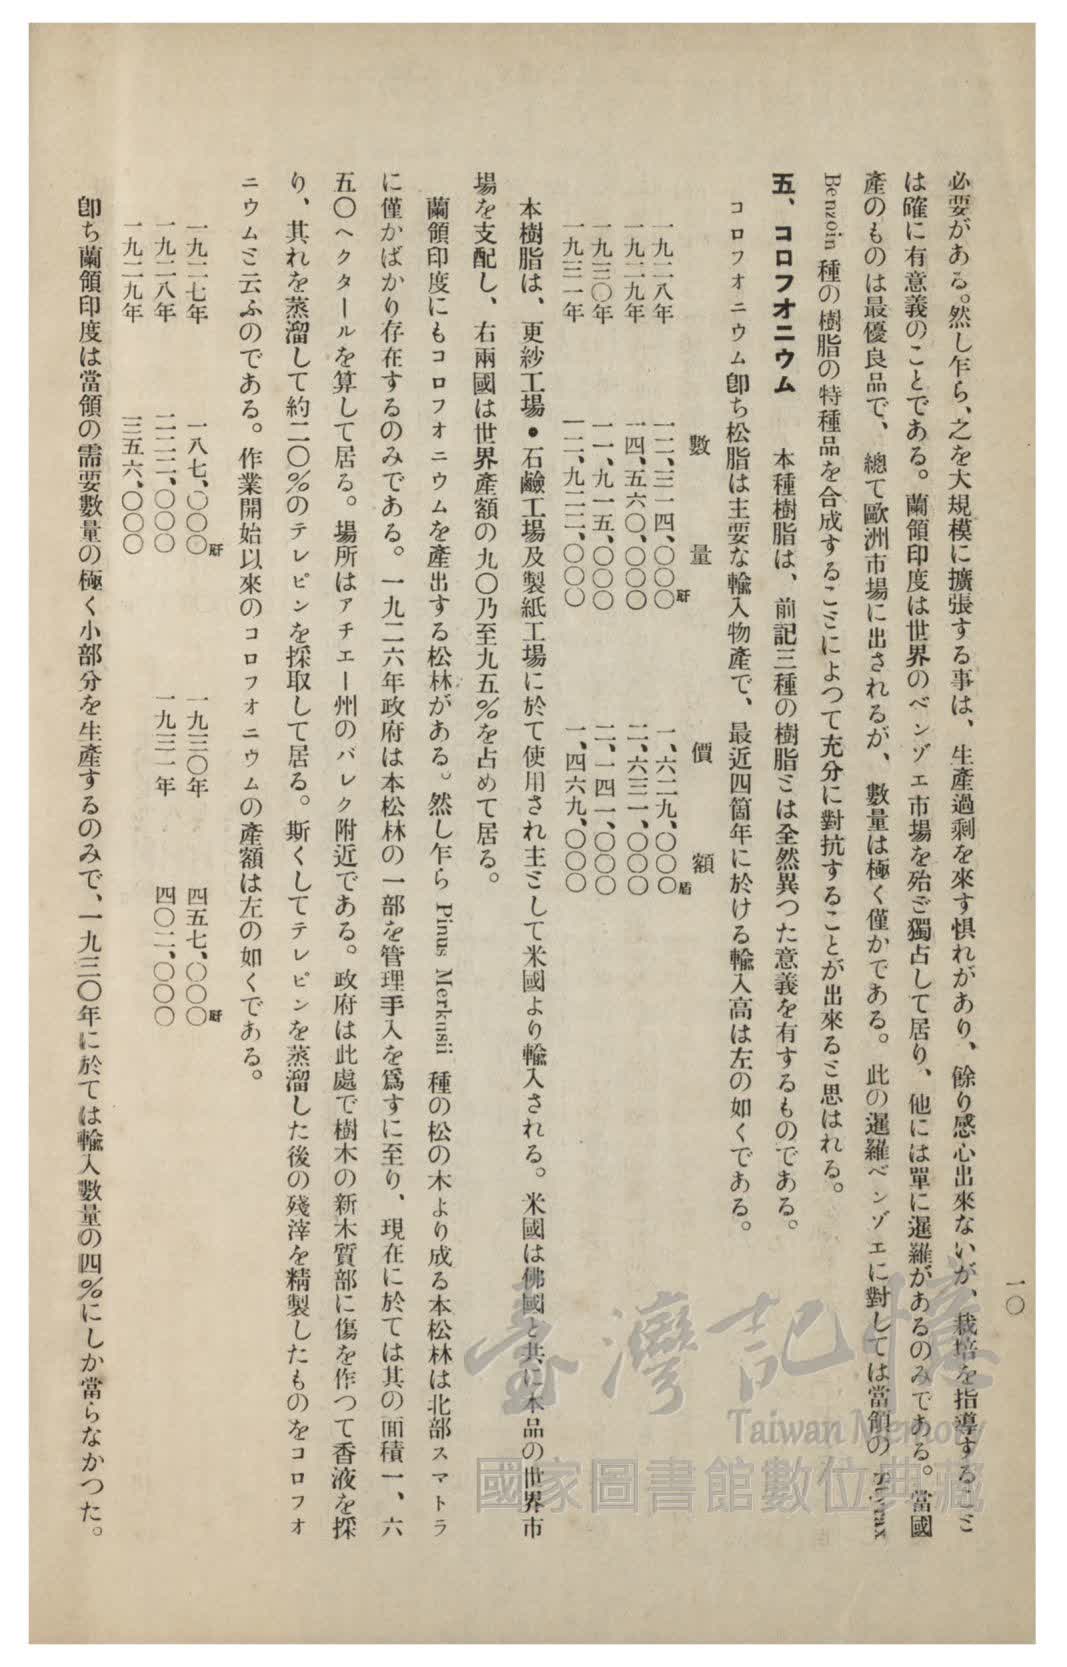 一〇
必要がある。然し乍ら、之を大規模に擴張する事は、生產過剩を來す惧れがあり、餘り感心出來ないが、栽培を指導するこミ
は確に有意義のことである。蘭領印度は世界のベンゾエ市場を殆ご獨占して居り、他には單に暹羅があるのみである。當國
產のものは最優良品で、總て歐洲市場に出されるが、數量は極く僅かである。此の暹羅ベンゾエに對しては當領の Styrax
Benzoin 種の樹脂の特種品を合成するこミによつて充分に對抗することが出來るミ思はれる。
五、コロフオニウム　本種樹脂は、前記三種の樹脂ミは全然異つた意義を有するものである。
コロフオニウム卽ち松脂は主要な輸入物產で、最近四箇年に於ける輸入高は左の如くである。
數量　價額
一九二八年　一二、三一四、〇〇〇瓩　一、六二九、〇〇〇盾
一九二九年　一四、五六〇、〇〇〇　二、六三一、〇〇〇
一九三〇年　一一、九一五、〇〇〇　二、一四一、〇〇〇
一九三一年　一二、九二二、〇〇〇　一、四六九、〇〇〇
本樹脂は、更紗工場・石鹼工場及製紙工場に於て使用され主ミして米國より輸入される。米國は佛國と共に本品の世界市
場を支配し、右兩國は世界產額の九〇乃至九五％を占めて居る。
蘭領印度にもコロフオニウムを產出する松林がある。然し乍ら Pinus Merkusii 種の松の木より成る本松林は北部スマトラ
に僅かばかり存在するのみである。一九二六年政府は本松林の一部を管理手入を爲すに至り、現在に於ては其の面積一、六
五〇ヘクタールを算して居る。場所はアチエー州のバレク附近である。政府は此處で樹木の新木質部に傷を作つて香液を採
り、其れを蒸溜して約二〇％のテレピンを採取して居る。斯くしてテレピンを蒸溜した後の殘滓を精製したものをコロフオ
ニウムミ云ふのである。作業開始以來のコロフオニウムの產額は左の如くである。
一九二七年　一八七、〇〇〇瓩　一九三〇年　四五七、〇〇〇瓩
一九二八年　二二二、〇〇〇　一九三一年　四〇二、〇〇〇
一九二九年　三五六、〇〇〇
卽ち蘭領印度は當領の需要數量の極く小部分を生產するのみで、一九三〇年に於ては輸入數量の四％にしか當らなかつた。
臺灣記憶
Taiwan Memory
國家圖書館數位典藏